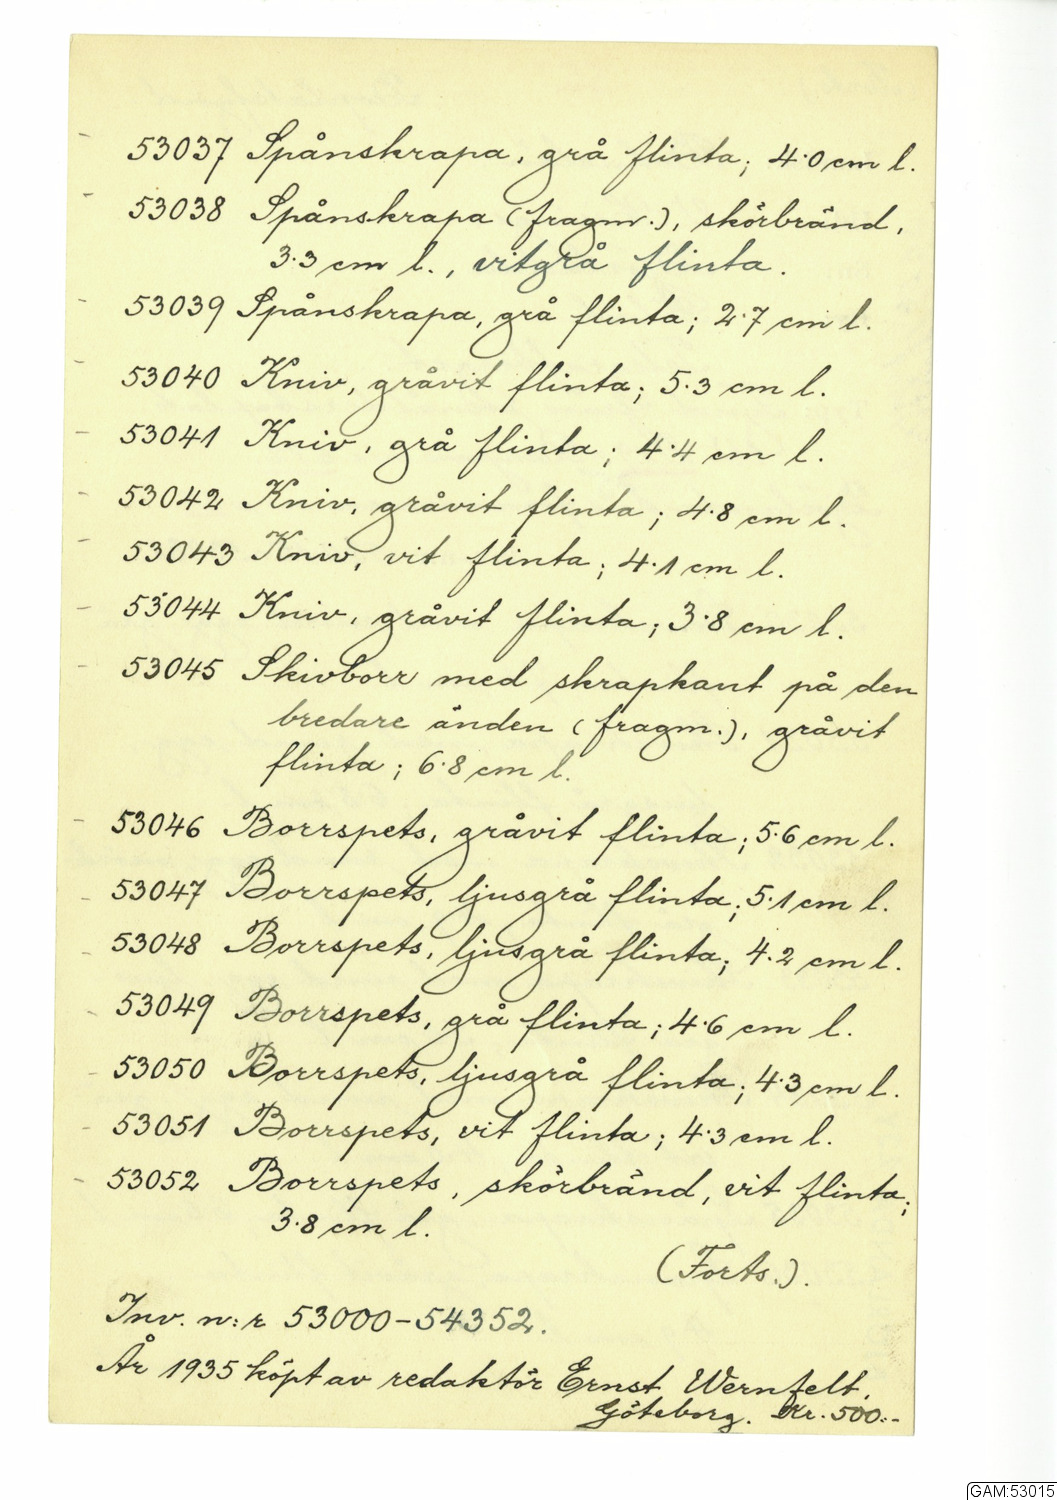 53037 Spånskrapa, grå flinta; 4.0 cm l.
53038 Spånskrapa (fragm.), skörbränd,
3.3 cm l., vitgrå flinta.
53039 Spånskrapa, grå flinta; 2.7 cm l.
53040 Kniv, gråvit flinta; 5.3 cm l.
53041 Kniv, grå flinta; 4.4 cm l.
53042 Kniv, gråvit flinta; 4.8 cm l.
53043 Kniv, vit flinta; 4.1 cm l.
53044 Kniv, gråvit flinta; 3.8 cm l.
53045 Skivborr med skrapkant på den
bredare änden (fragm.), gråvit
flinta; 6.8 cm l.
53046 Borrspets, gråvit flinta; 5.6 cm l.
53047 Borrspets, ljusgrå flinta; 5.1 cm l.
53048 Borrspets, ljusgrå flinta; 4.2 cm l.
53049 Borrspets, grå flinta; 4.6 cm l.
53050 Borrspets, ljusgrå flinta; 4.3 cm l.
53051 Borrspets, vit flinta; 4.3 cm l.
53052 Borrspets, skörbränd, vit flinta;
3.8 cm l.
(Forts.).
Inv. n:r 53000-54352.
År 1935 köpt av redaktör Ernst Wernfelt,
Göteborg. Kr. 500:-
GAM:53015